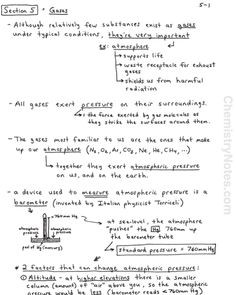 5-1
Section 5 Gases
- Although relatively few substances exist as gases
under typical conditions, they're very important
ex: atmosphere
→ supports life
→ waste receptacle for exhaust
gases
→ shields us from harmful
radiation
- All gases exert pressure on their surroundings.
→ the force exerted by gas molecules as
they strike the surfaces around them.
- The gases most familiar to us are the ones that make
up our atmosphere (N₂, O₂, Ar, CO₂, Ne, He, CH₄, ...)
→ together they exert atmospheric pressure
on us, and on the earth.
- a device used to measure atmospheric pressure is a
barometer (invented by Italian physicist Torricelli)
760mm Hg
atmospheric
pressure
atmospheric
pressure
pool of Hg (mercury)
at sea-level, the atmosphere
"pushes" the Hg 760mm up
the barometer tube
standard pressure = 760mm Hg
* 2 factors that can change atmospheric pressure:
① Altitude - at higher elevations there is a smaller
column (amount) of "air" above you, so the atmospheric
pressure would be less (barometer reads < 760mm Hg).
ChemistryNotes.com